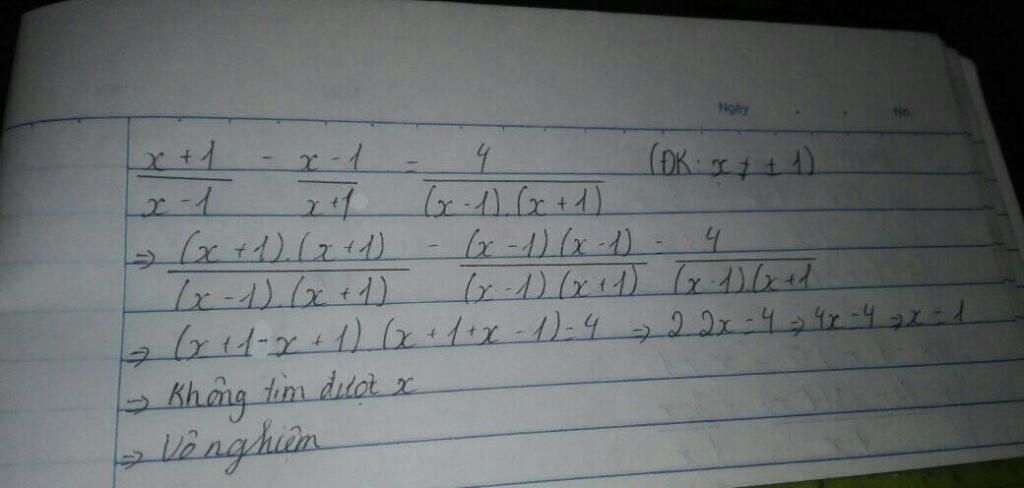 Ngày . . No.
x + 1 / x - 1 - x - 1 / x + 1 = 4 / (x - 1).(x + 1) (ĐK: x ≠ ± 1)
=> (x + 1).(x + 1) / (x - 1).(x + 1) - (x - 1)(x - 1) / (x - 1)(x + 1) = 4 / (x - 1)(x + 1
=> (x + 1 - x + 1).(x + 1 + x - 1) = 4 => 2.2x = 4 => 4x = 4 => x = 1
=> Không tìm được x
=> Vô nghiệm